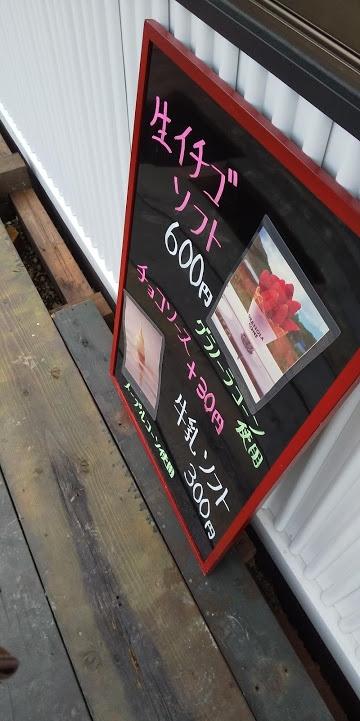 生イチゴ
ソフト
600円
チョコソース +30円
グラノーラコーン
使用
牛乳ソフト
300円
ノーマルコーン使用